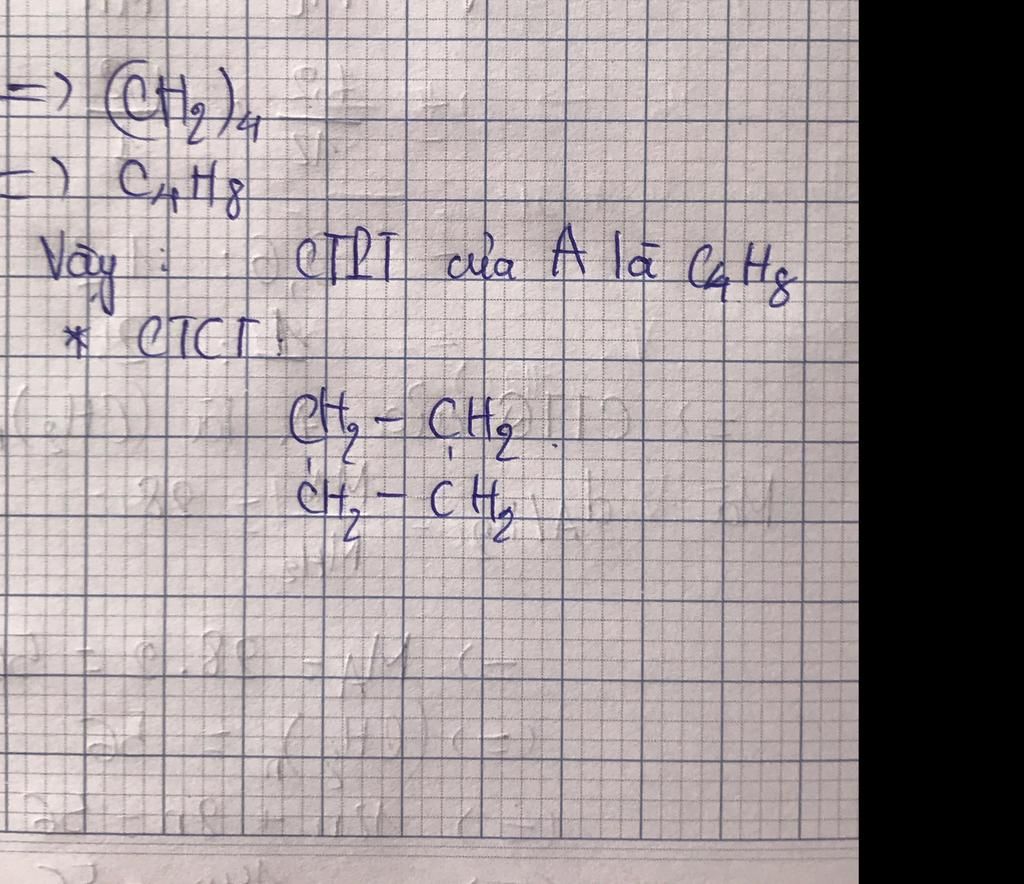 => (CH₂)₄
=> C₄H₈
Vậy : CTPT của A là C₄H₈
* CTCT:
CH₂ - CH₂
CH₂ - CH₂